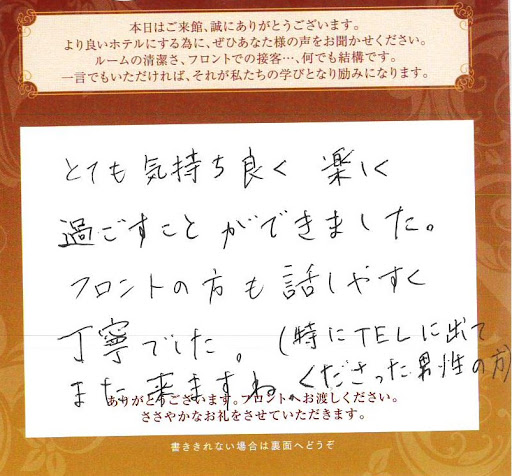 本日はご来館、誠にありがとうございます。
より良いホテルにする為に、ぜひあなた様の声をお聞かせください。
ルームの清潔さ、フロントでの接客…、何でも結構です。
一言でもいただければ、それが私たちの学びとなり励みになります。
とても気持ち良く 楽しく
過ごすことができました。
フロントの方も話しやすく
丁寧でした。(特にTELに出て
くださった男性の方)
また来ますね。
ありがとうございます。フロントへお渡しください。
ささやかなお礼をさせていただきます。
書ききれない場合は裏面へどうぞ